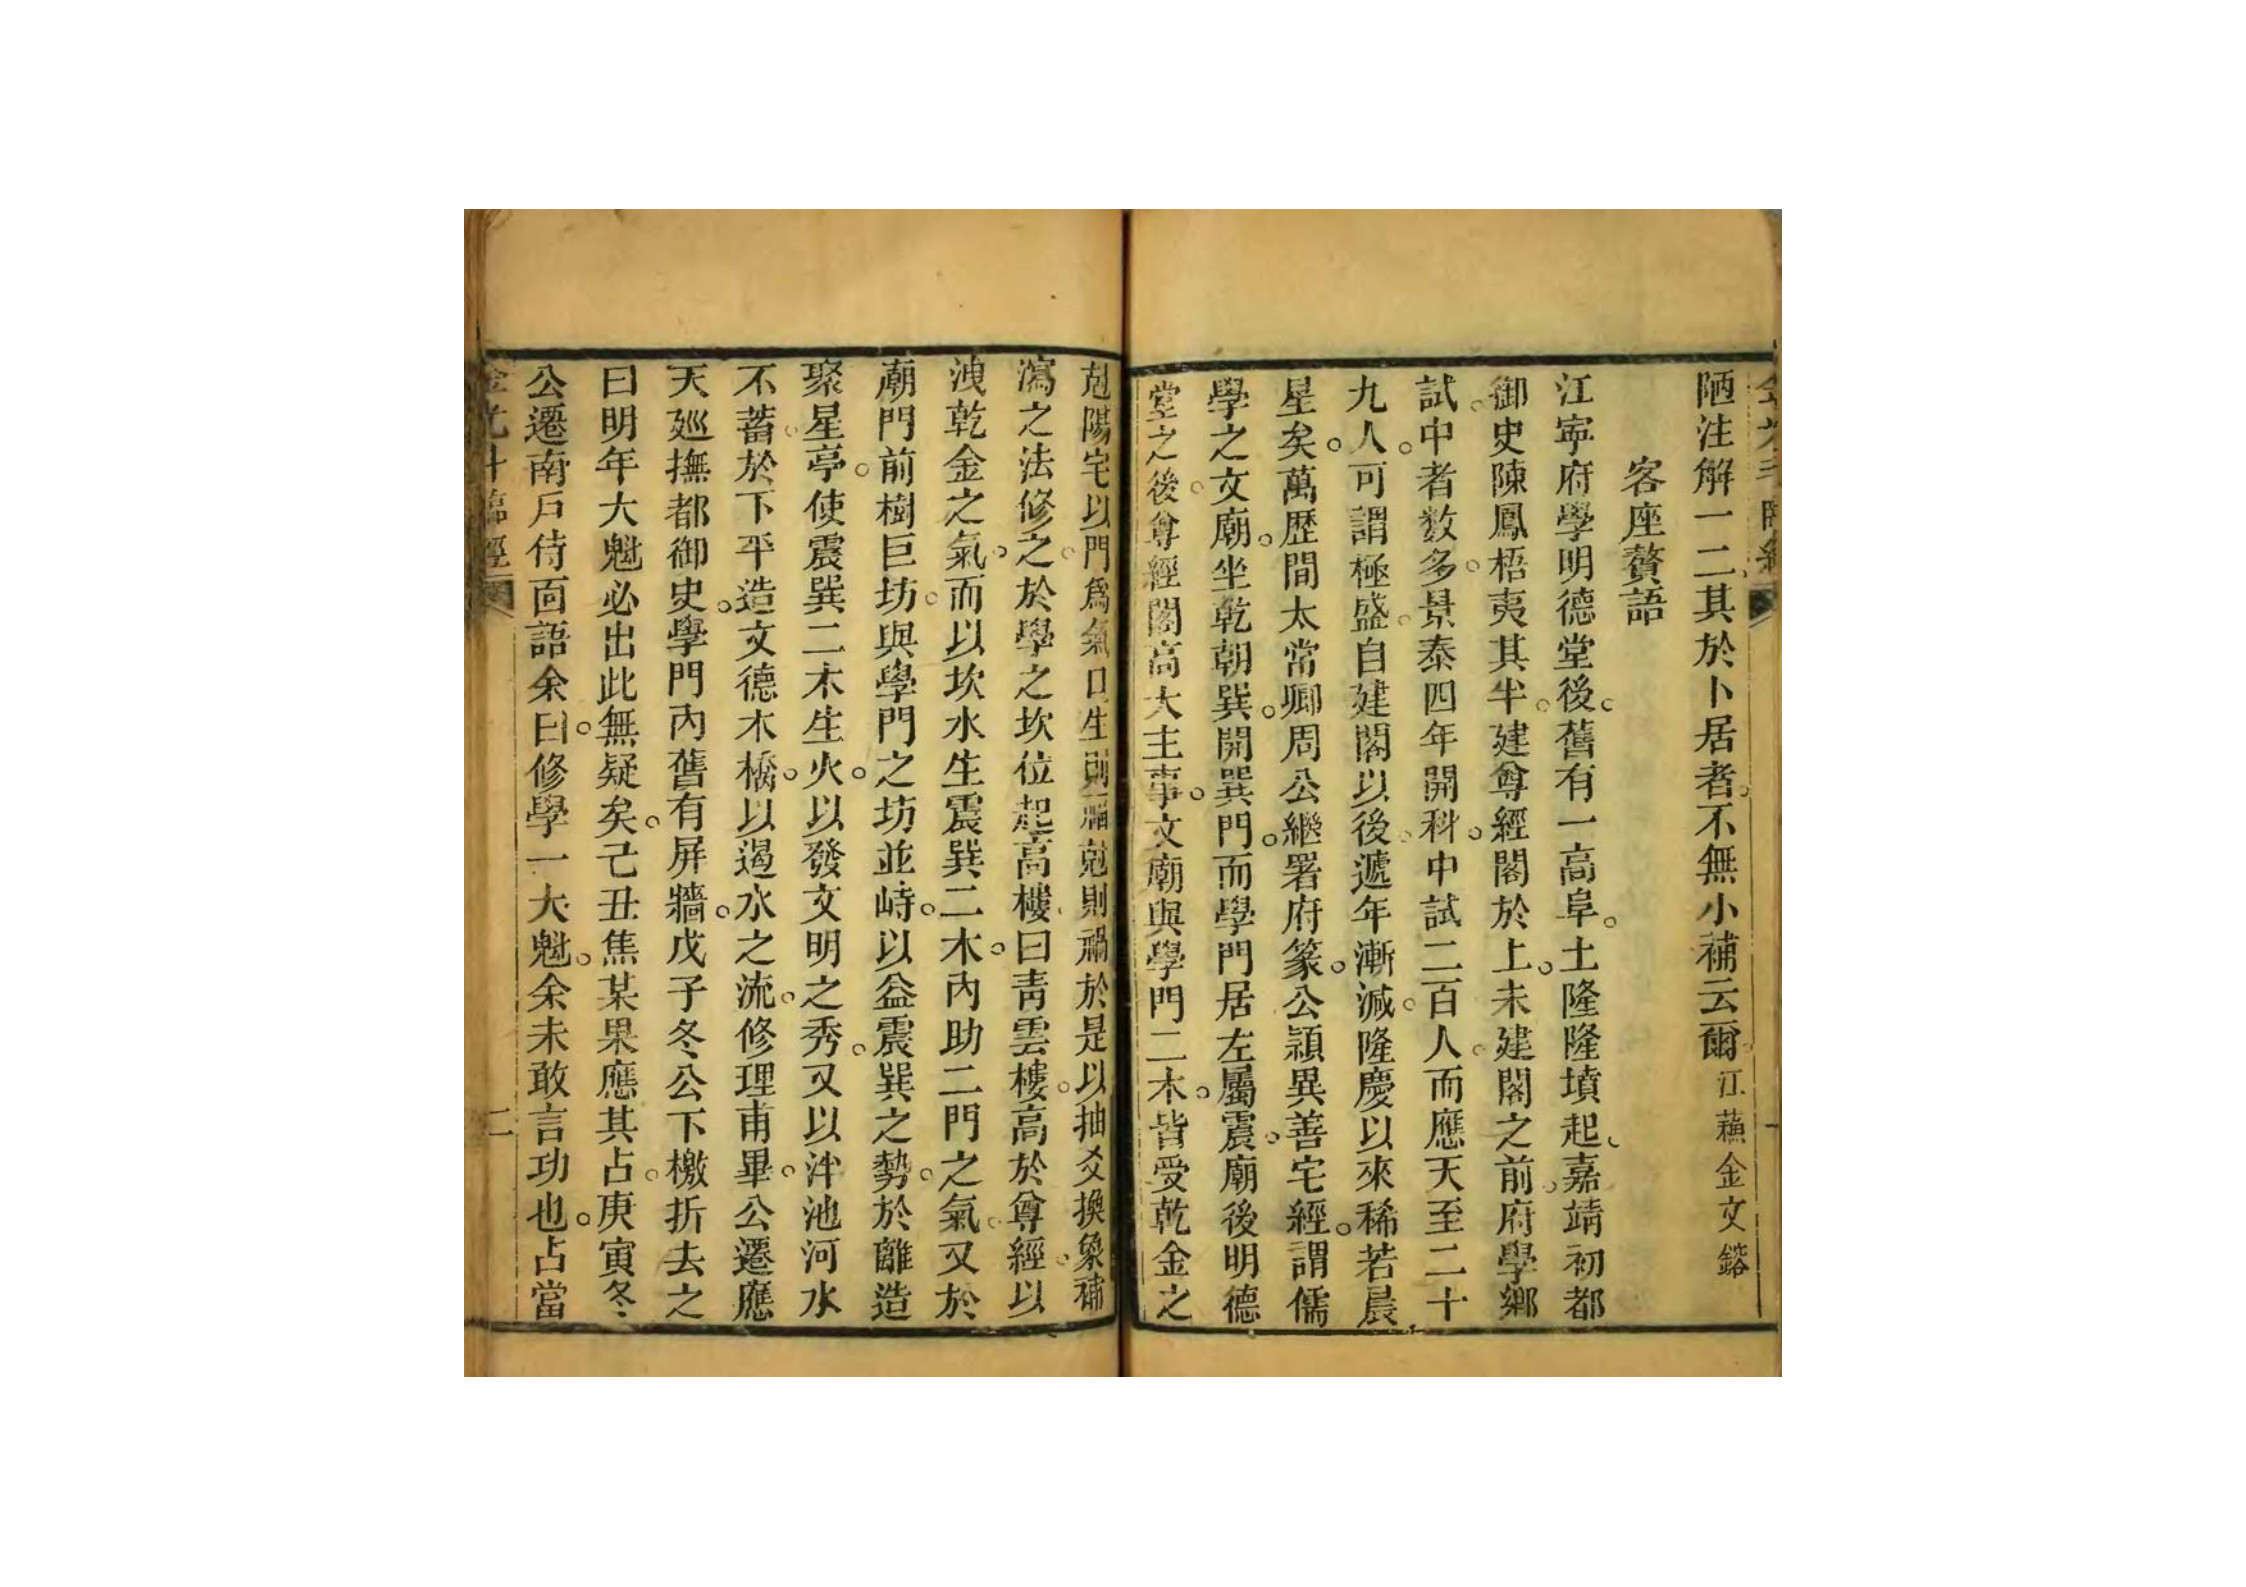 陋注解一二其於卜居者。不無小補云爾 江蘓金文鎔
客座贅語
江寧府學明德堂後。舊有一高阜。土隆隆墳起。嘉靖初都
御史陳鳳梧夷其半。建尊經閣於上。未建閣之前。府學鄉
試。中者数多。景泰四年開科。中試二百人。而應天至二十
九人。可謂極盛。自建閣以後。遞年漸減。隆慶以來稀若晨
星矣。萬歷間太常卿周公繼署府篆。公頴異善宅經。謂儒
學之文廟。坐乾朝巽。開巽門。而學門居左屬震。廟後明德
堂之後。尊經閣高大主事。文廟與學門二木。皆受乾金之
尅陽宅以門爲氣口生則福尅則禍於是以抽爻換象補
瀉之法修之。於學之坎位起高樓。曰青雲樓。高於尊經。以
洩乾金之氣。而以坎水生震巽二木。內助二門之氣。又於
廟門前樹巨坊。與學門之坊並峙。以益震巽之勢。於離造
聚星亭。使震巽二木生火。以發文明之秀。又以泮池河水
不蓄。於下平造文德木橋。以遏水之流。修理甫畢。公遷應
天廵撫都御史。學門內舊有屏牆。戊子冬公下檄折去之
曰明年大魁必出此無疑矣。己丑焦某果應其占。庚寅冬
公遷南戶侍面語余曰。修學一大魁。余未敢言功也。占當
二